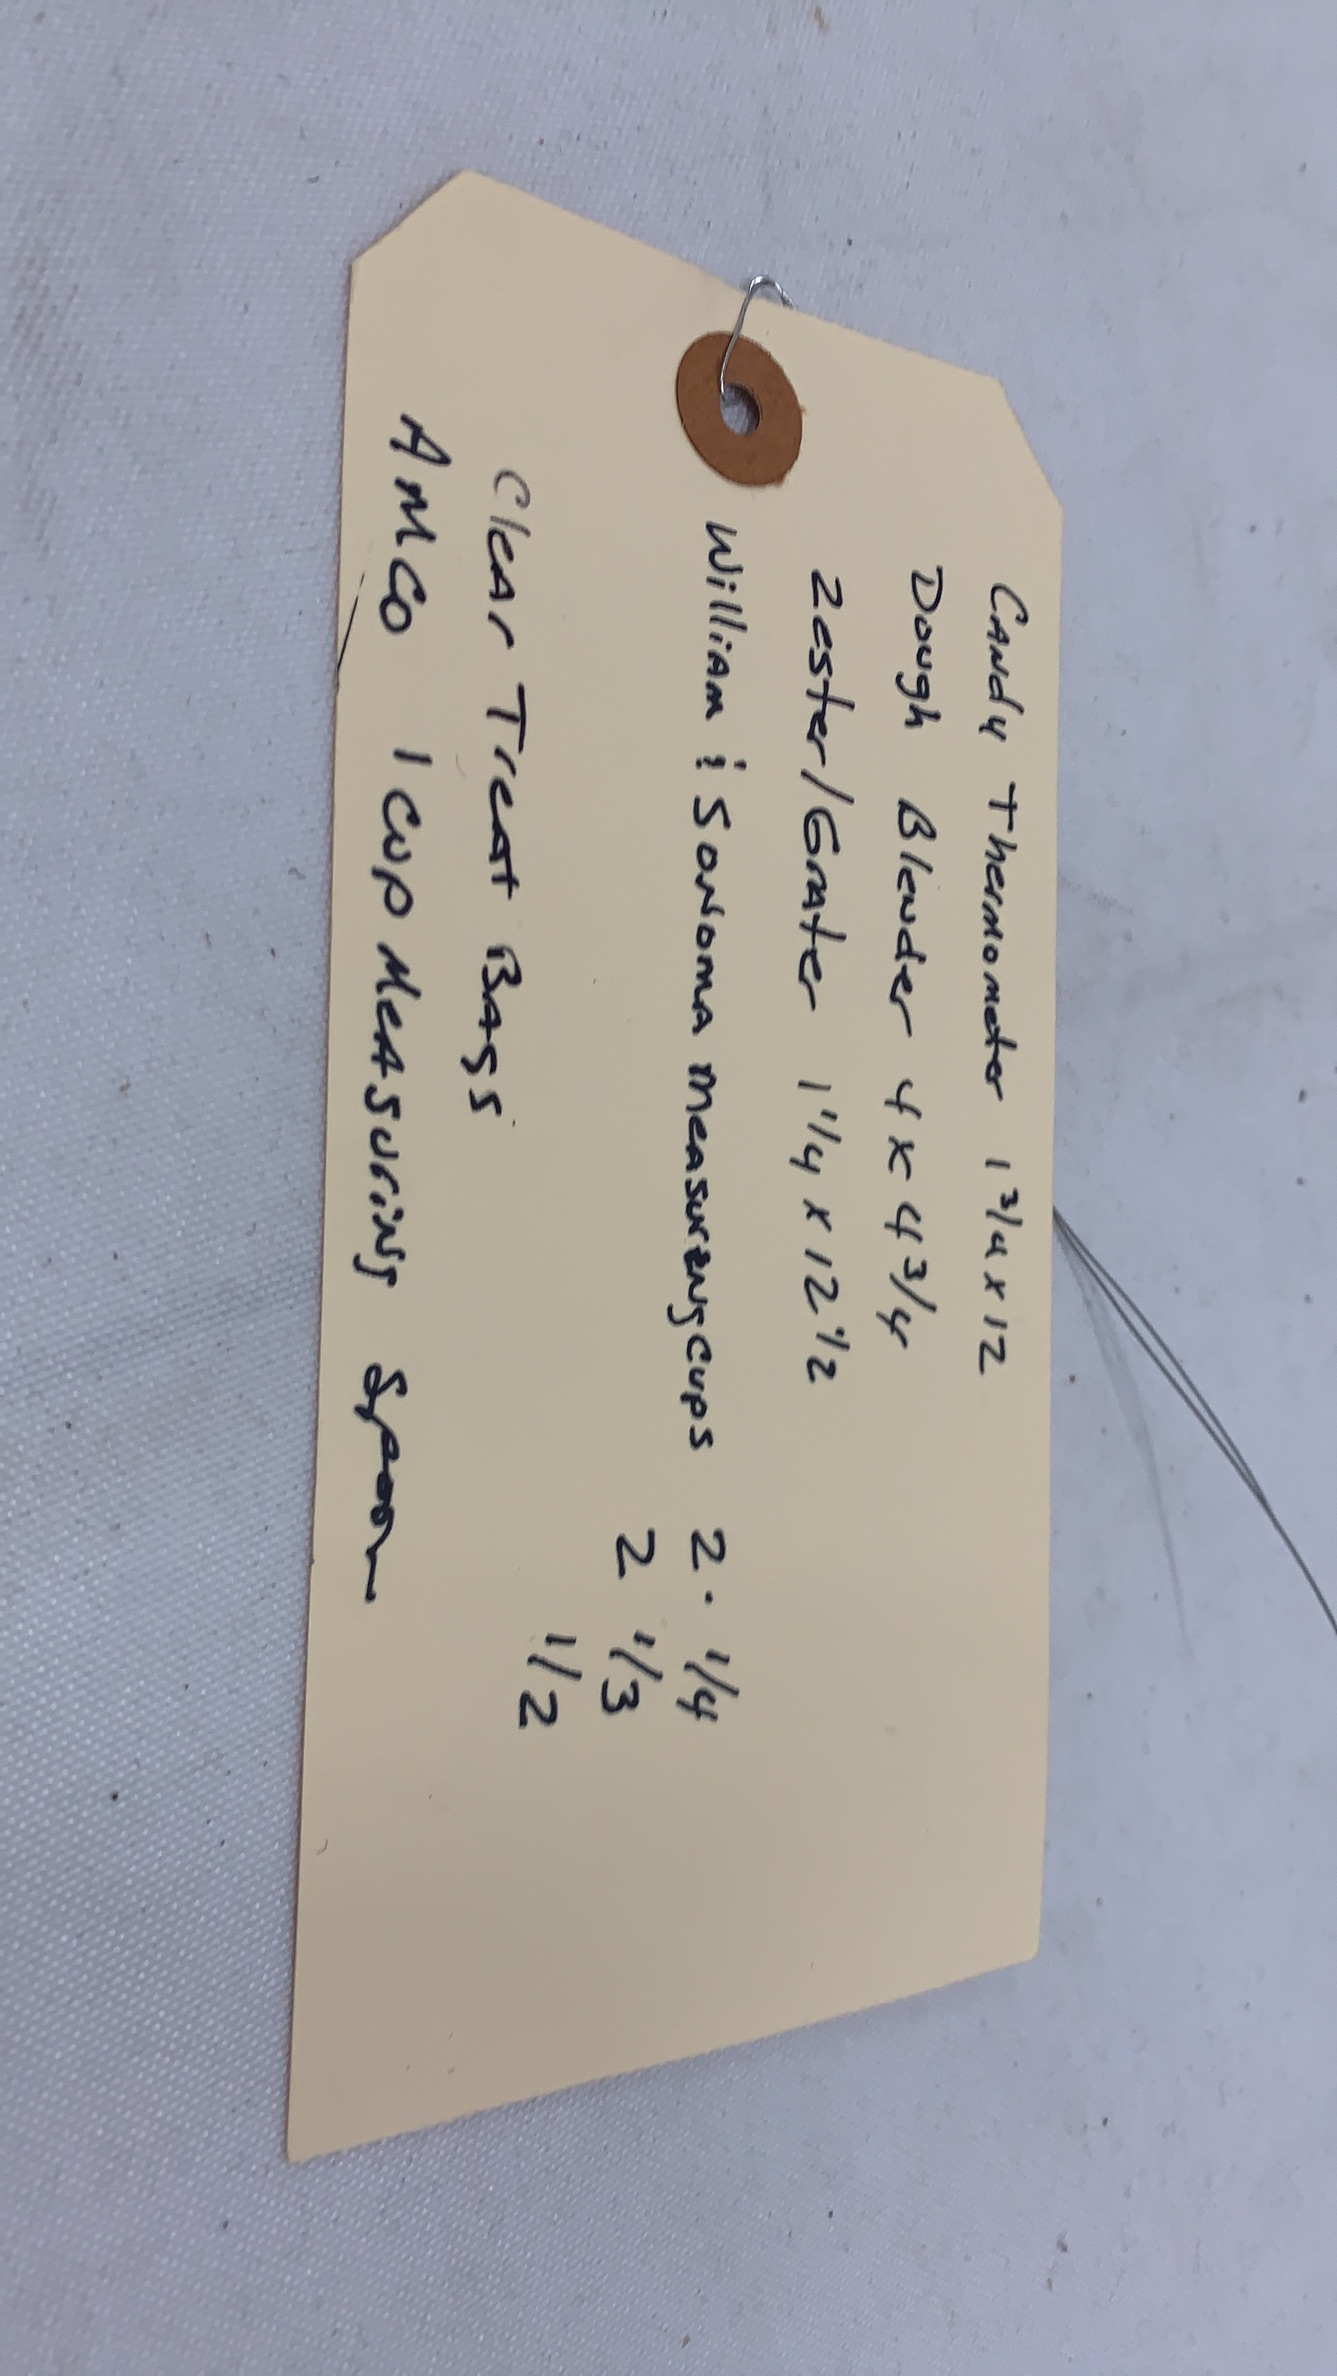 Candy Thermometer 1 3/4 x 12
Dough Blender 4 x 4 3/4
Zester/Grater 1 1/4 x 12 1/2
William & Sonoma measuring cups 2 · 1/4
2 1/3
1/2
Clear Treat Bags
AMCO 1 cup Measuring Spoon